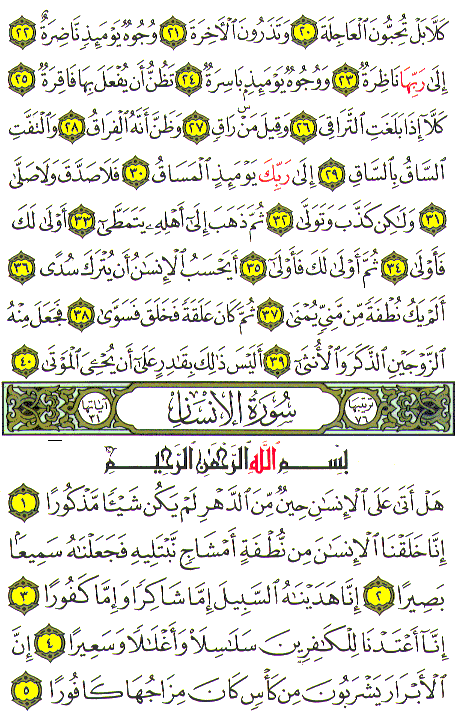 كَلَّا بَلْ تُحِبُّونَ ٱلْعَاجِلَةَ ٢٠ وَتَذَرُونَ ٱلْآخِرَةَ ٢١ وُجُوهٌ يَوْمَئِذٍ نَّاضِرَةٌ ٢٢
إِلَىٰ رَبِّهَا نَاظِرَةٌ ٢٣ وَوُجُوهٌ يَوْمَئِذٍۭ بَاسِرَةٌ ٢٤ تَظُنُّ أَن يُفْعَلَ بِهَا فَاقِرَةٌ ٢٥
كَلَّآ إِذَا بَلَغَتِ ٱلتَّرَاقِيَ ٢٦ وَقِيلَ مَنْ ۜ رَاقٍ ٢٧ وَظَنَّ أَنَّهُ ٱلْفِرَاقُ ٢٨ وَٱلْتَفَّتِ
ٱلسَّاقُ بِٱلسَّاقِ ٢٩ إِلَىٰ رَبِّكَ يَوْمَئِذٍ ٱلْمَسَاقُ ٣٠ فَلَا صَدَّقَ وَلَا صَلَّىٰ
٣١ وَلَٰكِن كَذَّبَ وَتَوَلَّىٰ ٣٢ ثُمَّ ذَهَبَ إِلَىٰٓ أَهْلِهِۦ يَتَمَطَّىٰٓ ٣٣ أَوْلَىٰ لَكَ
فَأَوْلَىٰ ٣٤ ثُمَّ أَوْلَىٰ لَكَ فَأَوْلَىٰٓ ٣٥ أَيَحْسَبُ ٱلْإِنسَٰنُ أَن يُتْرَكَ سُدًى ٣٦
أَلَمْ يَكُ نُطْفَةً مِّن مَّنِيٍّ يُمْنَىٰ ٣٧ ثُمَّ كَانَ عَلَقَةً فَخَلَقَ فَسَوَّىٰ ٣٨ فَجَعَلَ مِنْهُ
ٱلزَّوْجَيْنِ ٱلذَّكَرَ وَٱلْأُنثَىٰٓ ٣٩ أَلَيْسَ ذَٰلِكَ بِقَٰدِرٍ عَلَىٰٓ أَن يُحْـِۧىَ ٱلْمَوْتَىٰ ٤٠
ترتيبها ٧٦ سُورَةُ الإِنسَان آياتها ٣١
بِسْمِ ٱللَّهِ ٱلرَّحْمَٰنِ ٱلرَّحِيمِ
هَلْ أَتَىٰ عَلَى ٱلْإِنسَٰنِ حِينٌ مِّنَ ٱلدَّهْرِ لَمْ يَكُن شَيْـًٔا مَّذْكُورًا ١
إِنَّا خَلَقْنَا ٱلْإِنسَٰنَ مِن نُّطْفَةٍ أَمْشَاجٍ نَّبْتَلِيهِ فَجَعَلْنَٰهُ سَمِيعًۢا
بَصِيرًا ٢ إِنَّا هَدَيْنَٰهُ ٱلسَّبِيلَ إِمَّا شَاكِرًا وَإِمَّا كَفُورًا ٣
إِنَّآ أَعْتَدْنَا لِلْكَٰفِرِينَ سَلَٰسِلَا۟ وَأَغْلَٰلًا وَسَعِيرًا ٤ إِنَّ
ٱلْأَبْرَارَ يَشْرَبُونَ مِن كَأْسٍ كَانَ مِزَاجُهَا كَافُورًا ٥